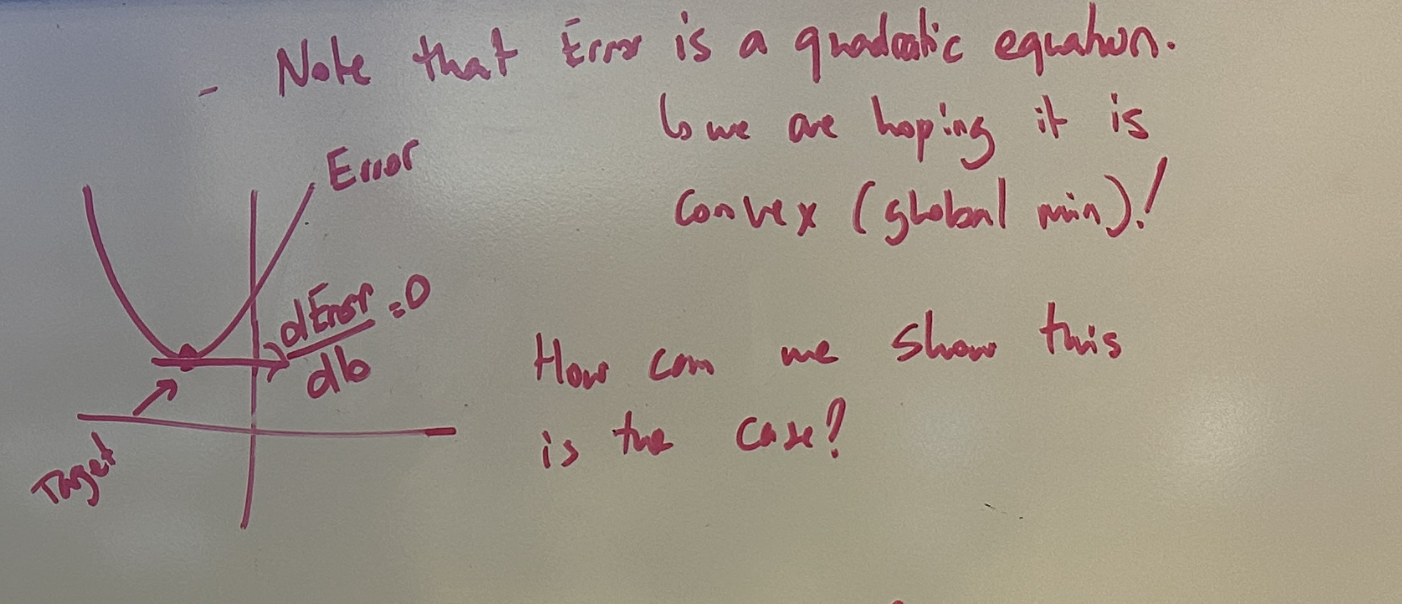 - Note that Error is a quadratic equation.
↳ we are hoping it is
convex (global min)!
Error
dError/db = 0
Target
How can we show this
is the case?